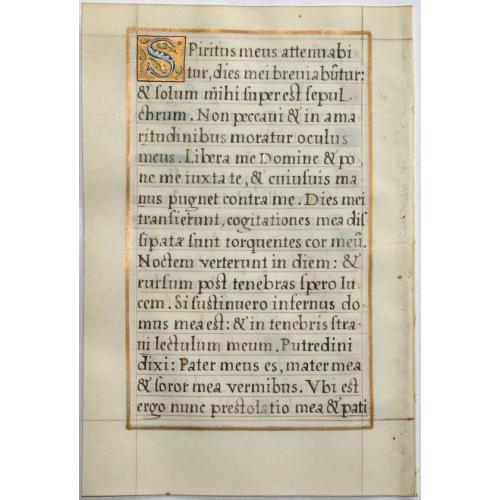 SPiritus meus attenuabi
tur, dies mei breviabūtur:
& solum mihi superest sepul-
chrum. Non peccavi & in ama
ritudinibus moratur oculus
meus. Libera me Domine & po
ne me iuxta te, & cuiusuis ma
nus pugnet contra me. Dies mei
transierunt, cogitationes mea dis
sipatæ sunt torquentes cor meū.
Noctem verterunt in diem: &
rursum post tenebras spero lu
cem. Si sustinuero infernus do
mus mea est: & in tenebris stra-
ui lectulum meum. Putredini
dixi: Pater meus es, mater mea
& soror mea vermibus. Vbi est
ergo nunc prestolatio mea & pati